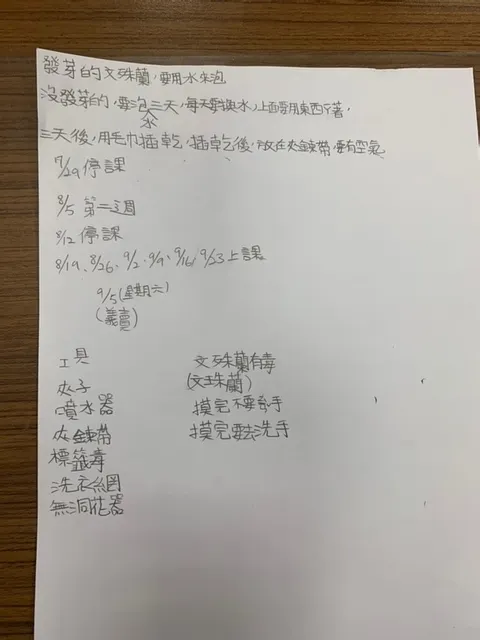 發芽的文殊蘭,要用水來泡
沒發芽的,要泡水三天,每天要換水,上面要用東西ㄚ著,
三天後,用毛巾插乾,插乾之後,放在夾鍊帶,要有空氣
7/29停課
8/5 第二週
8/12停課
8/19、8/26、9/2、9/9、9/16、9/23上課
9/5(星期六)
(義賣)
工具
夾子
噴水器
夾鍊帶
標籤
洗衣網
無洞花器
文殊蘭有毒
(文珠蘭)
摸完不要手
摸完要去洗手